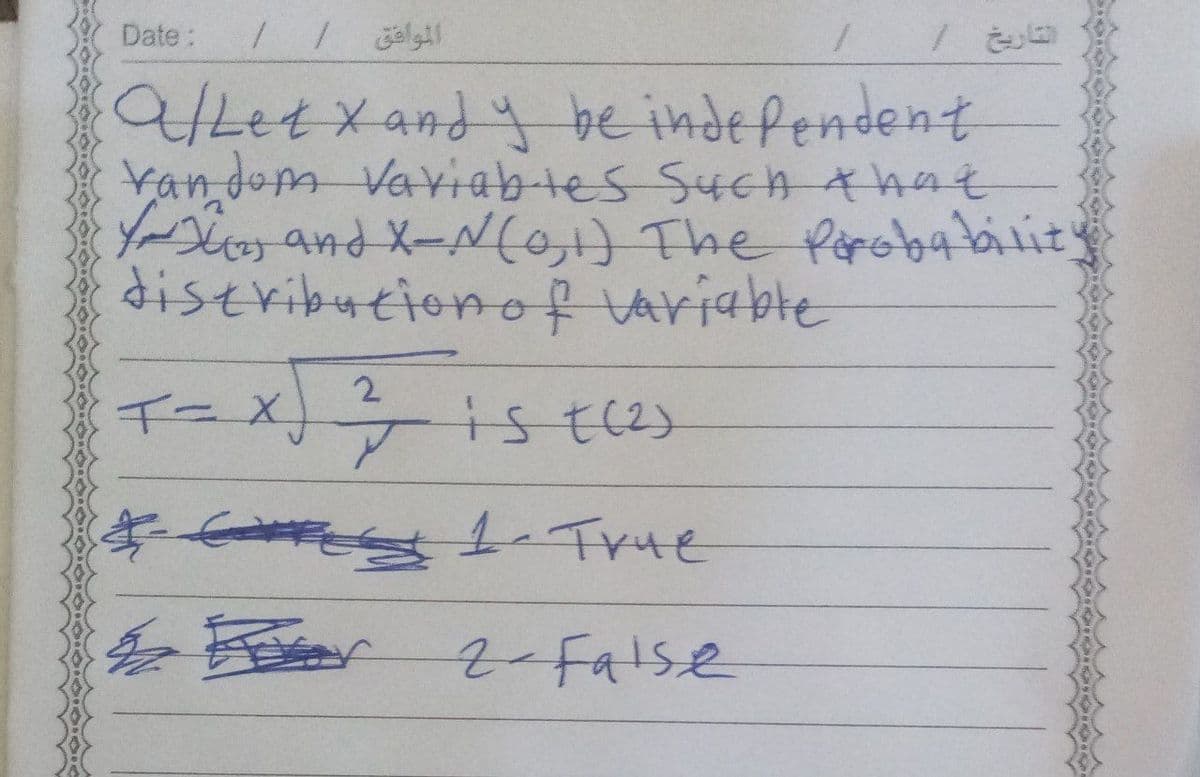 Date : / / الموافق / / التاريخ
Q/Let x and y be independent
random variables such that
Y~X²(2) and X-N(0,1) The Probability
distribution of variable
T = X√2/Y is t(2)
1- True
2- False